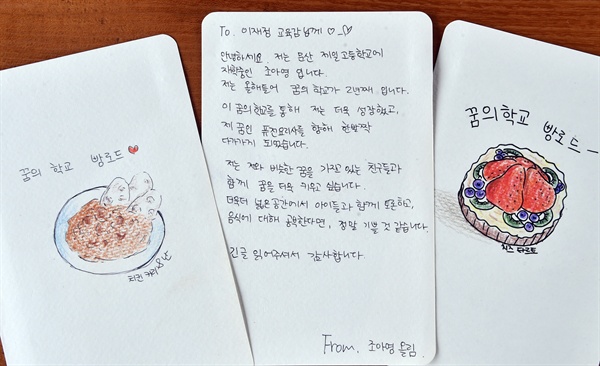 꿈의 학교 빵로드
치킨 커리 & 난
To. 이재정 교육감님께
안녕하세요. 저는 운산 제일고등학교에
재학중인 조아영 입니다.
저는 올해들어 꿈의학교가 2년째 입니다.
이 꿈의학교를 통해 저는 더욱 성장했고,
제 꿈인 퓨전요리사를 향해 한발짝
다가가게 되었습니다.
저는 저와 비슷한 꿈을 가지고 있는 친구들과
함께 꿈을 더욱 키우고 싶습니다.
더욱더 넓은공간에서 아이들과 함께 요리하고,
음식에 대해 공유한다면, 정말 기쁠 것 같습니다.
긴글 읽어주셔서 감사합니다.
From. 조아영 올림.
꿈의학교 빵로드
치즈 타르트